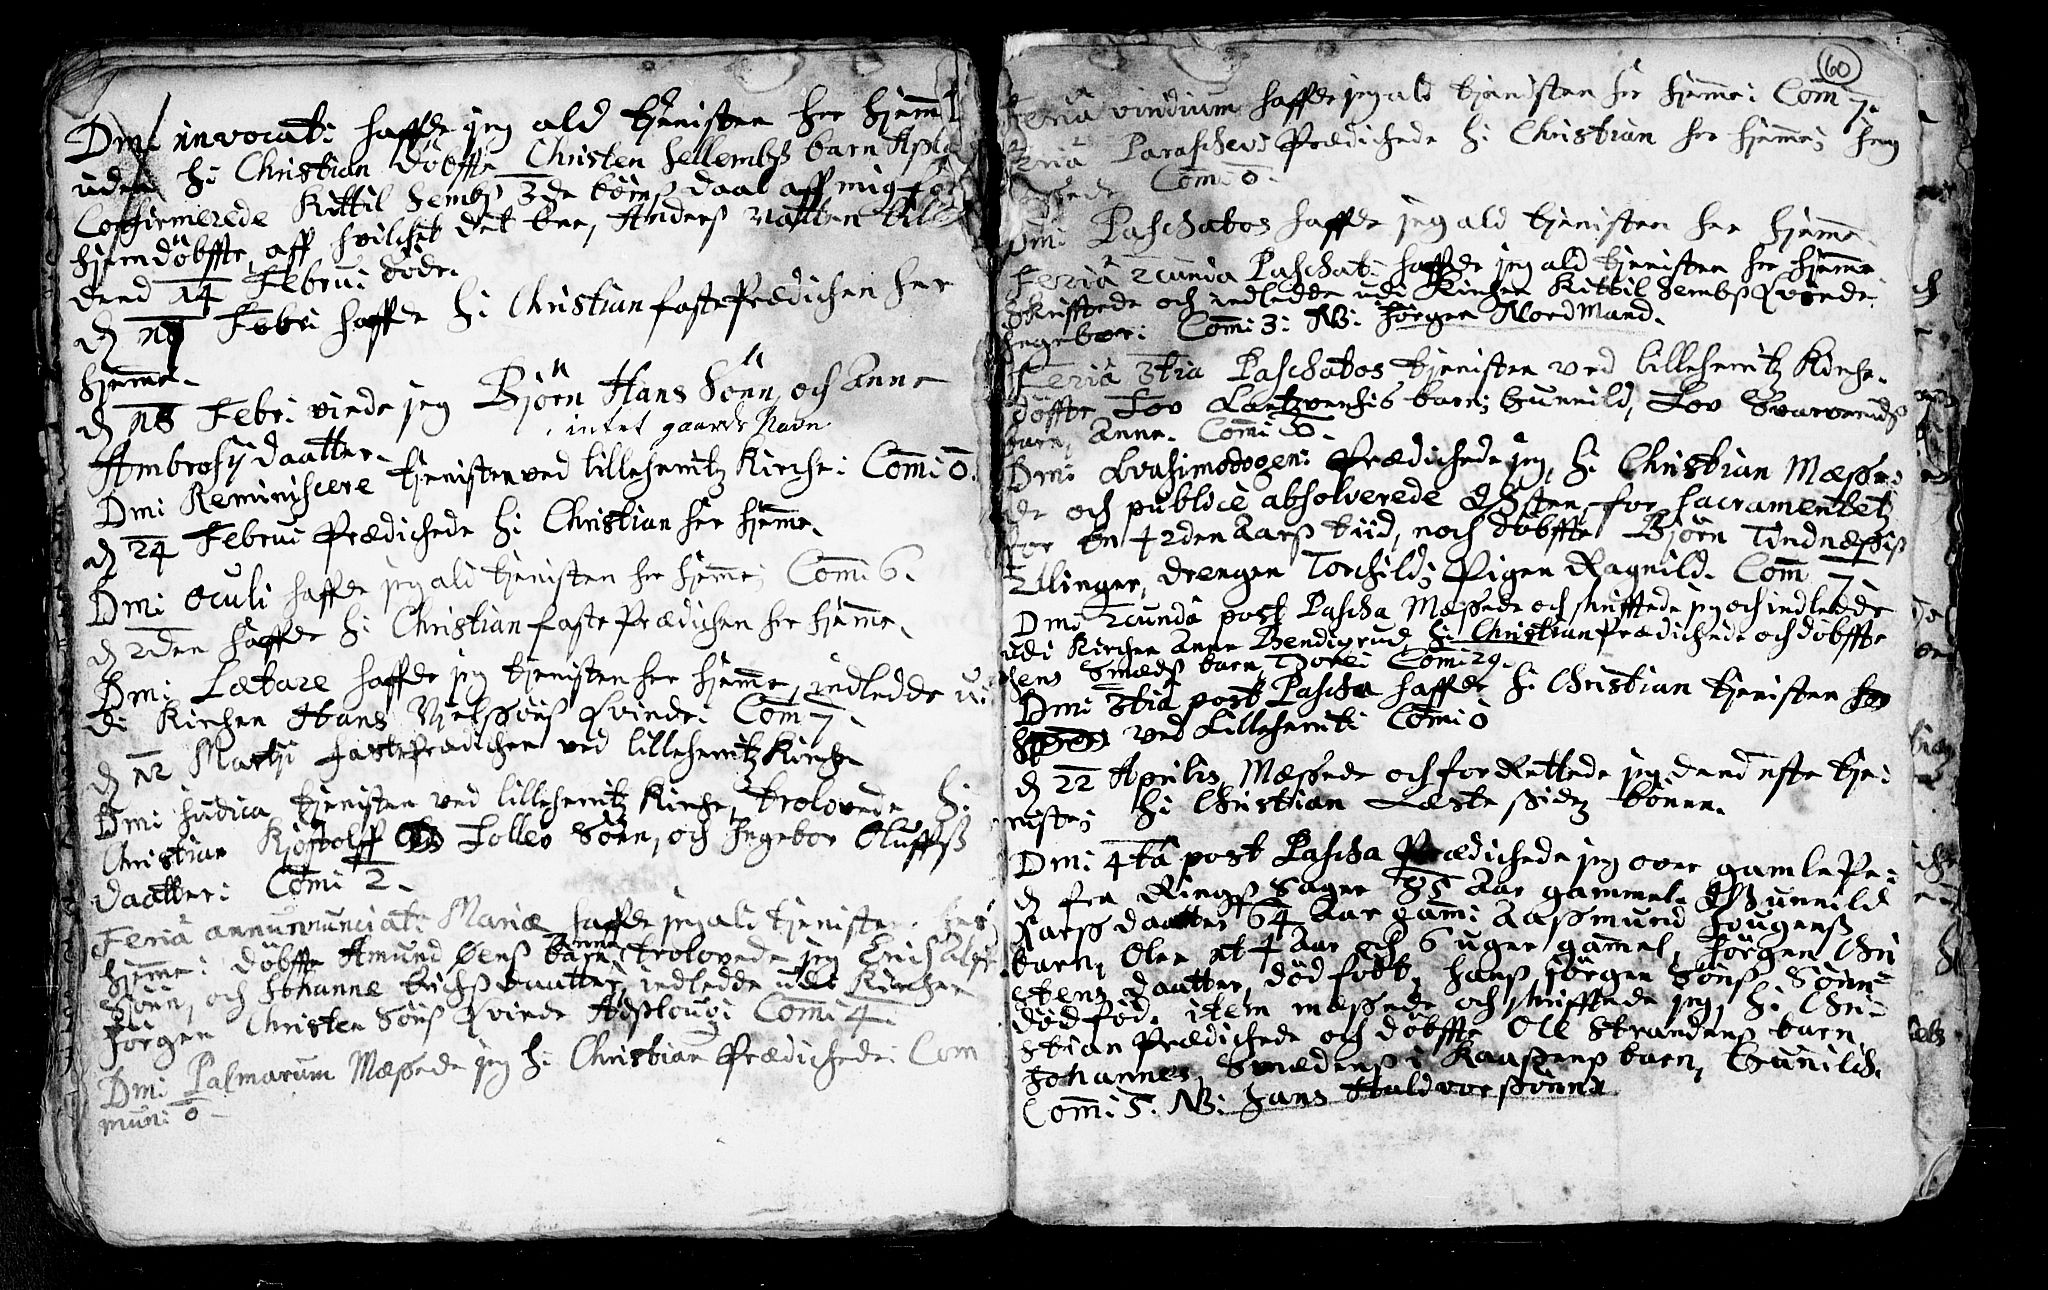 Dmi invocat: haffde jeg ald tienisten her hiemme
uden hr Christian döbffte Christen Hellembß barn
Confirmerede Kittil Sembß 3de börnß daab aff mig
hjemdöbffte, aff hvilchet det ene, Anderß
dend 14 Februi döde.
d 18 Febr: haffde h: Christian fastePrædichen her
hjemme.
d 18 Febr: viede jeg Björn Hans Sönn, och Anne
intet gaardz Nafn
Ambrosij daatter.
Dmi Reminiscere tjenisten ved lillehemitz Kirche: Com̄: 0.
d 24 Februi Prædichede h: Christian her hjemme.
Dmi Oculi haffde jeg ald tjenisten her hjemme; Com̄: 6.
d 2den haffde h: Christian faste Prædichen her hjemme.
Dmi Lætare haffde jeg tjenisten her hjemme, indledde u-
di Kirchen Hans Nielßönß Qvinde. Com̄ 7.
d 12 Martji fastePrædichen ved lillehemitz Kirche
Dmi Judica tjenisten ved lillehemitz Kirche, trolovede h:
Christian Kjöstolff Tollev Sönn, och Ingebor Oluffß
daatter: Com̄: 2.
Feria annunnunciat: Mariæ haffde jeg ald tjenisten her
hjemme: döbffte Amund barn Anne, trolovede jeg Erich
Sönn, och Johanne Erichß daatter, indledde udi Kirchen
Jörgen Christen Sönß Qvinde Com̄: 4.
Dmi Palmarum Mæßede jeg h: Christian Prædichede: Com
mūn: 0.
Feria viridium haffde jeg ald tjenisten her hjemme: Com̄ 7.
Feria Parascheve Prædichede h: Christian her hjemme; jeg
Com̄: 0.
Dmi Paschatos haffde jeg ald tjenisten her hjemme.
Feria 2cunda Paschat: haffde jeg ald tjenisten her hjemme
Skrifftede och indledde udi Kirchen Kittil Sembß Qvinde.
Ingebor: Com̄: 3: NB: Jörgen NordMand.
Feria 3tia Paschatos tjenisten ved lillehemitz Kirche.
döffte Tov barn; Gunnild, Tov Svarverudß
barn, Anne. Com̄: 0.
Dmi Qvasimodogeni Prædichede jeg, h: Christian Mæße-
de och publicè absolverede for sacramentetz
for en 42den Aarß tiid, noch döbffte Björn Tindnæßiß
Tvillinger, drengen Torchild; Pigen Ragnild. Com̄ 7.
Dmi 2cunda post Pascha Mæßede och skrifftede jeg och indledde
udi Kirchen Anne Bendigrud, h: Christian Prædichede och döbffte
Jens Smedß barn, Com̄: 29.
Dmi 3tia post Pascha haffde h: Christian tjenisten
ved Lillehemit: Com̄: 0
d 22 Aprilis, Mæßede och forRettede jeg dend ofte tje-
niste; h: Christian Læste ßidez bönen.
Dmi 4ta post Pascha Prædichede jeg over gamle Pe-
d fra Ringß Sager 85 Aar gammel. Gunnild
Larß daatter 64 Aar gam̄: Aaßmund Jougenß
barn, Olen at 4 Aar och 6 uger gammel, Jörgen Chri
stens daatter, död föd̄t, hanß Jörgen Sönß Sönn
död föd. item mæßede och skrifftede jeg, h: Chri-
stian Prædichede och döbffte Ole Strandenß barn
Johannes, Smedenß i Kaaßenß barn, Gūnild.
Com̄: 5. NB: Hans Haldvorßönn
60